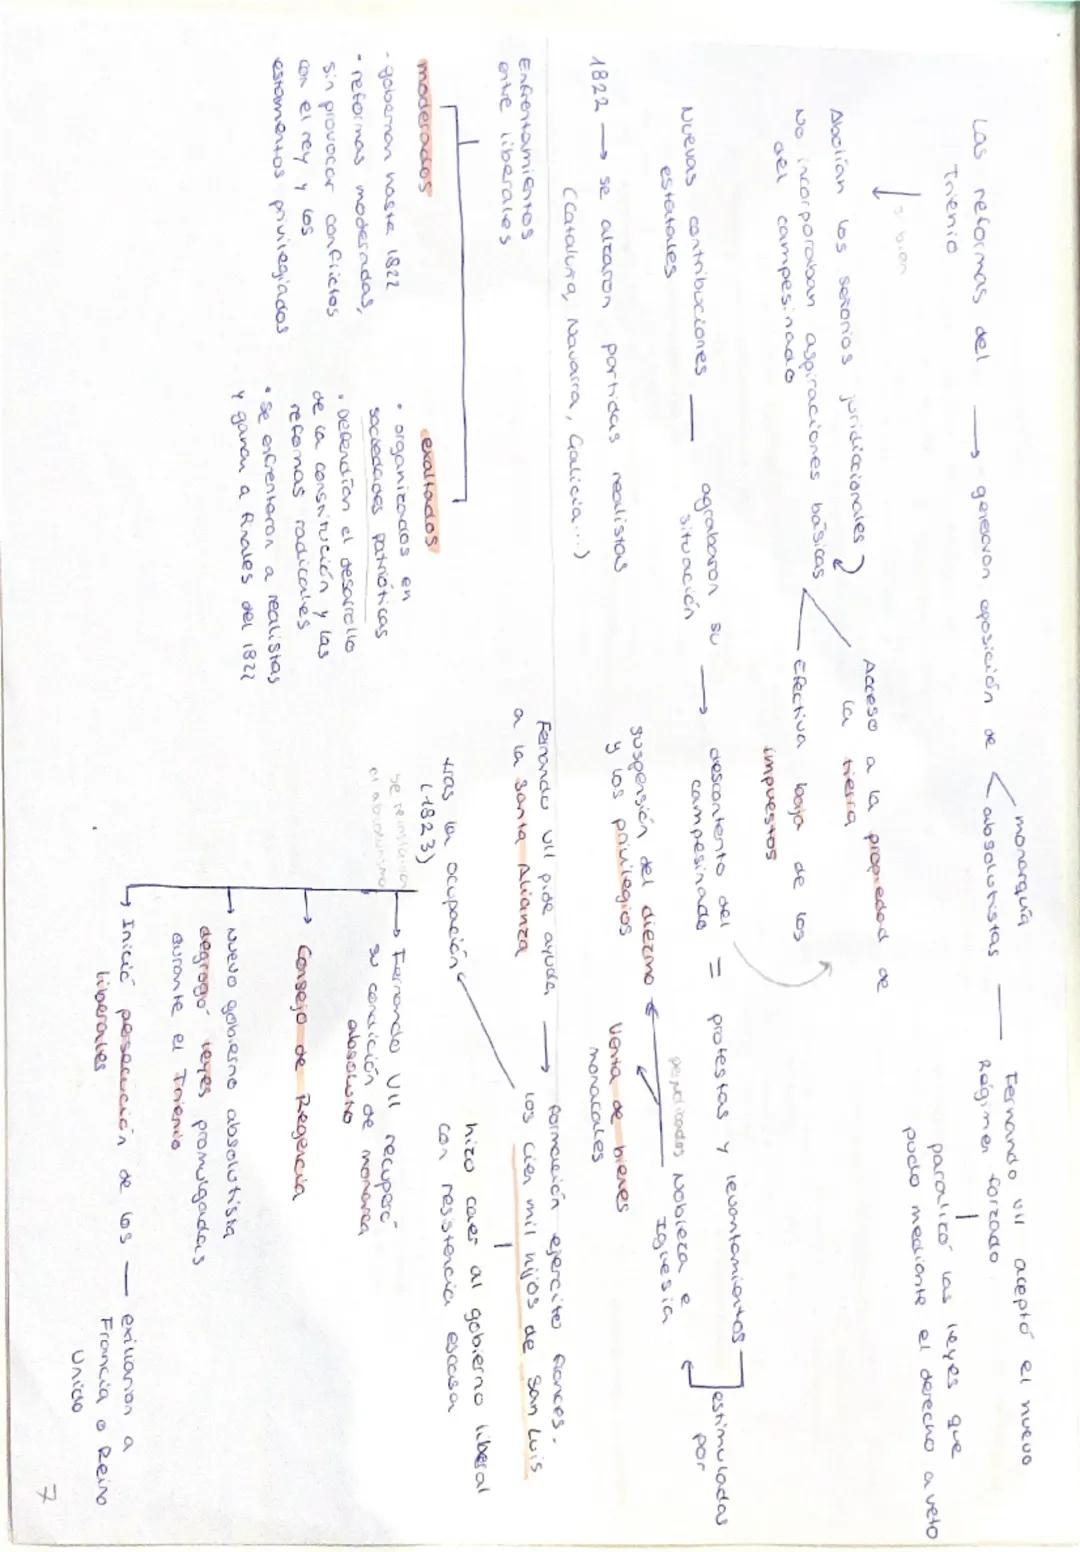 Las reformas del
Trienio
→ generaron oposición de
monarquía
absolutistas
Fernando VII aceptó el nuevo
Régimen forzado
paralizó las leyes que
pudo mediante el derecho a veto
si bien
Abolían los señoríos jurídiccionales
No incorporaban aspiraciones básicas
del campesinado
Acceso a la propiedad de
la tierra
Efectiva baja de los
impuestos
Nuevas contribuciones
estatales
agrabaron su
situación
→ descontento del
campesinado
= protestas y levantamientos
estimuladas
por
perjudicados Nobleza e
Iglesia
suspensión del diezmo
y los privilegios
Venta de bienes
monacales
1822 → se alzaron partidas realistas
(Cataluña, Navarra, Galicia...)
Enfrentamientos
entre liberales
moderados
- gobernan hasta 1822
• reformas moderadas,
sin provocar conflictos
con el rey y los
estamentos privilegiados
exaltados
• organizados en
sociedades patrióticas
• Defendían el desarrollo
de la constitución y las
reformas radicales
• Se enfrentaron a realistas
y ganan a finales del 1822
Fernando VII pide ayuda
a la Santa Alianza
→ formación ejercito frances.
los cien mil hijos de San Luis
hizo caer al gobierno liberal
con resistencia escasa
tras la ocupación
(1823)
se reinstauró
el absolutismo
→ Fernando VII recuperó
su condición de monarca
absoluto
→ Consejo de Regencia
→ Nuevo gobierno absolutista
degrogó leyes promulgadas
durante el Trienio
→ Inició persecución de los
liberales
— exiliaron a
Francia o Reino
Unido
7